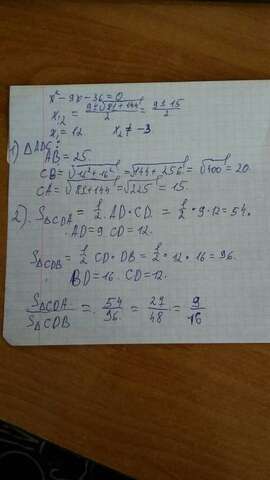 x² - 9x - 36 = 0
x₁,₂ = (9 ± √(81+144))/2 = (9 ± 15)/2
x₁ = 12    x₂ ≠ -3
1) △ADC:
AB = 25.
CB = √(12²+16²) = √(144+256) = √400 = 20.
CA = √(81+144) = √225 = 15.
2). S△CDA = 1/2 · AD · CD. = 1/2 · 9 · 12 = 54.
AD = 9. CD = 12.
S△CDB = 1/2 CD · DB = 1/2 · 12 · 16 = 96.
BD = 16. CD = 12.
S△CDA/S△CDB = 54/96 = 27/48 = 9/16